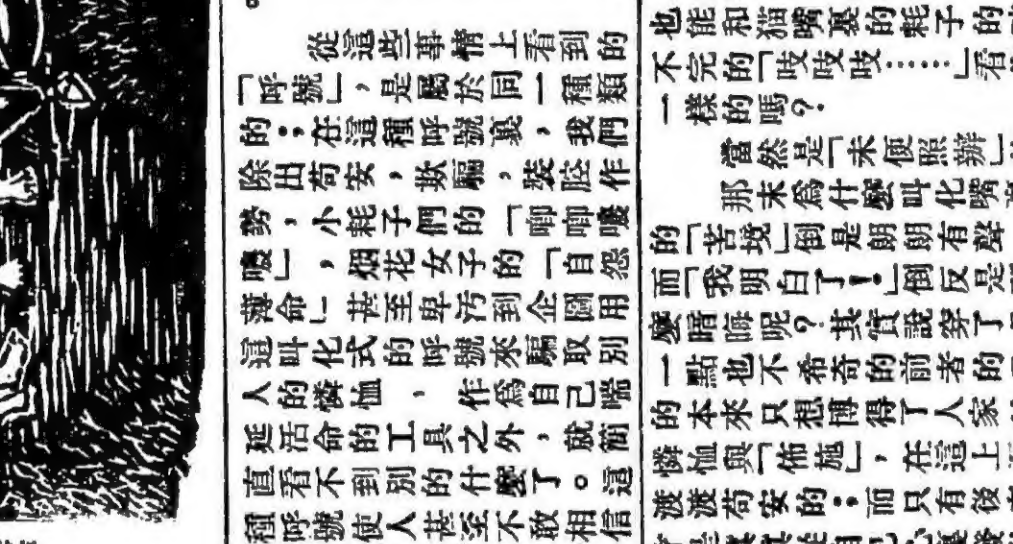 從這些事情上看到的
「呼號」，是屬於同一種類
的；在這種呼號裏，我們
除出苟安，欺騙，裝腔作
勢，小耗子們的「唧唧嘍
嘍」，烟花女子的「自怨
薄命」甚至卑污到企圖用
這叫化式的呼號來騙取別
人的憐恤，作爲自己喘
延活命的工具之外，就簡
直看不到別的什麼了。這
種呼號使人甚至不敢相信
也能和猫嘴裏的耗子的
不完的「吱吱吱……」看
一樣的嗎？
當然是「未便照辦」
那末爲什麼叫化嘴
的「苦境」倒是朗朗有聲
而「我明白了！」倒反是
麼暗晦呢？其實說穿了
一點也不希奇的前者的
的本來只想博得了人家
憐恤與「佈施」，在這上
渡渡苟安的；而只有後